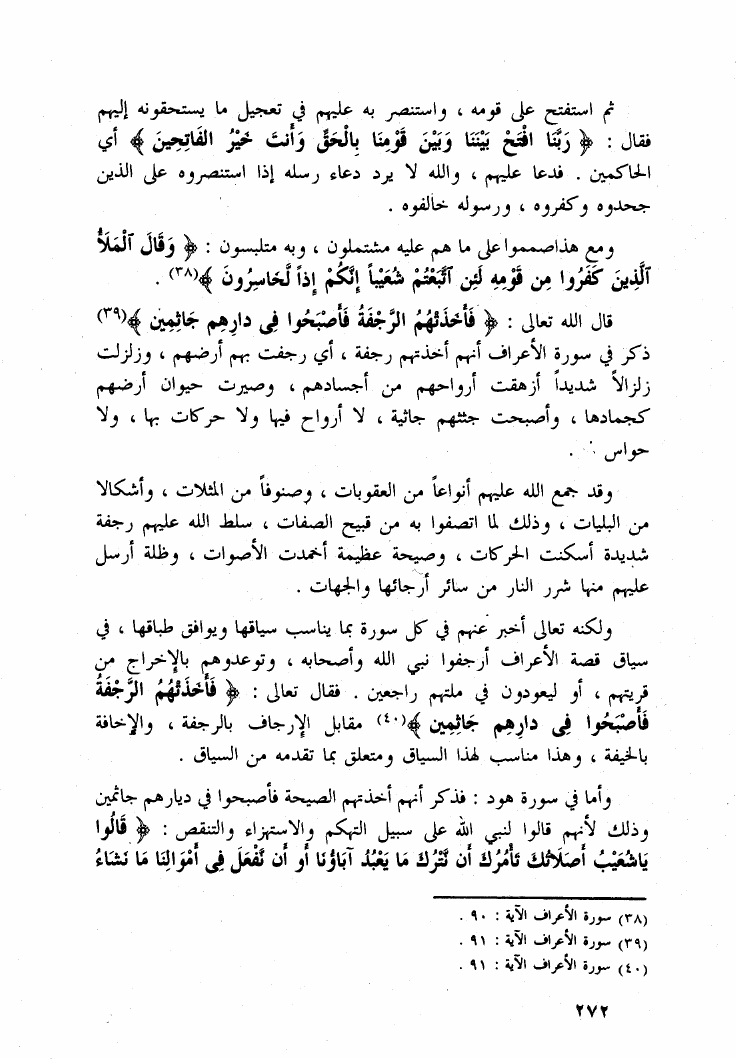 ثم استفتح على قومه ، واستنصر به عليهم في تعجيل ما يستحقونه إليهم
فقال : ﴿ رَبَّنَا افْتَحْ بَيْنَنَا وَبَيْنَ قَوْمِنَا بِالْحَقِّ وَأَنتَ خَيْرُ الفَاتِحِينَ ﴾ أي
الحاكمين . فدعا عليهم ، والله لا يرد دعاء رسله إذا استنصروه على الذين
جحدوه وكفروه ، ورسوله خالفوه .
ومع هذاصمموا على ما هم عليه مشتملون ، وبه متلبسون : ﴿ وَقَالَ ٱلْمَلَأُ
ٱلَّذِينَ كَفَرُوا مِن قَوْمِهِ لَئِنِ ٱتَّبَعْتُمْ شُعَيْباً إِنَّكُمْ إِذاً لَّخَاسِرُونَ ﴾(٣٨) .
قال الله تعالى : ﴿ فَأَخَذَتْهُمُ الرَّجْفَةُ فَأَصْبَحُوا فِى دارِهِم جَاثِمِين ﴾(٣٩)
ذكر في سورة الأعراف أنهم أخذتهم رجفة ، أي رجفت بهم أرضهم ، وزلزلت
زلزالاً شديداً أزهقت أرواحهم من أجسادهم ، وصيرت حيوان أرضهم
كجمادها ، وأصبحت جثثهم جاثية ، لا أرواح فيها ولا حركات بها ، ولا
حواس .
وقد جمع الله عليهم أنواعاً من العقوبات ، وصنوفاً من المثلات ، وأشكالا
من البليات ، وذلك لما اتصفوا به من قبيح الصفات ، سلط الله عليهم رجفة
شديدة أسكنت الحركات ، وصيحة عظيمة أخمدت الأصوات ، وظلة أرسل
عليهم منها شرر النار من سائر أرجائها والجهات .
ولكنه تعالى أخبر عنهم في كل سورة بما يناسب سياقها ويوافق طباقها ، في
سياق قصة الأعراف أرجفوا نبي الله وأصحابه ، وتوعدوهم بالإخراج من
قريتهم ، أو ليعودون في ملتهم راجعين . فقال تعالى : ﴿ فَأَخَذَتْهُمُ الرَّجْفَةُ
فَأَصْبَحُوا فِى دارِهِم جَاثِمِين ﴾(٤٠) مقابل الإرجاف بالرجفة ، والإخافة
بالخيفة ، وهذا مناسب لهذا السياق ومتعلق بما تقدمه من السياق .
وأما في سورة هود : فذكر أنهم أخذتهم الصيحة فأصبحوا في ديارهم جاثمين
وذلك لأنهم قالوا لنبي الله على سبيل التهكم والاستهزاء والتنقص : ﴿ قَالُوا
يَاشُعَيْبُ أَصَلَاتُكَ تَأْمُرُكَ أَن نَّتْرُكَ مَا يَعْبُدُ آبَاؤُنَا أَو أَن نَّفْعَلَ فِى أَمْوَالِنَا مَا نَشَاءُ
(٣٨) سورة الأعراف الآية : ٩٠ .
(٣٩) سورة الأعراف الآية : ٩١ .
(٤٠) سورة الأعراف الآية : ٩١ .
٢٧٢